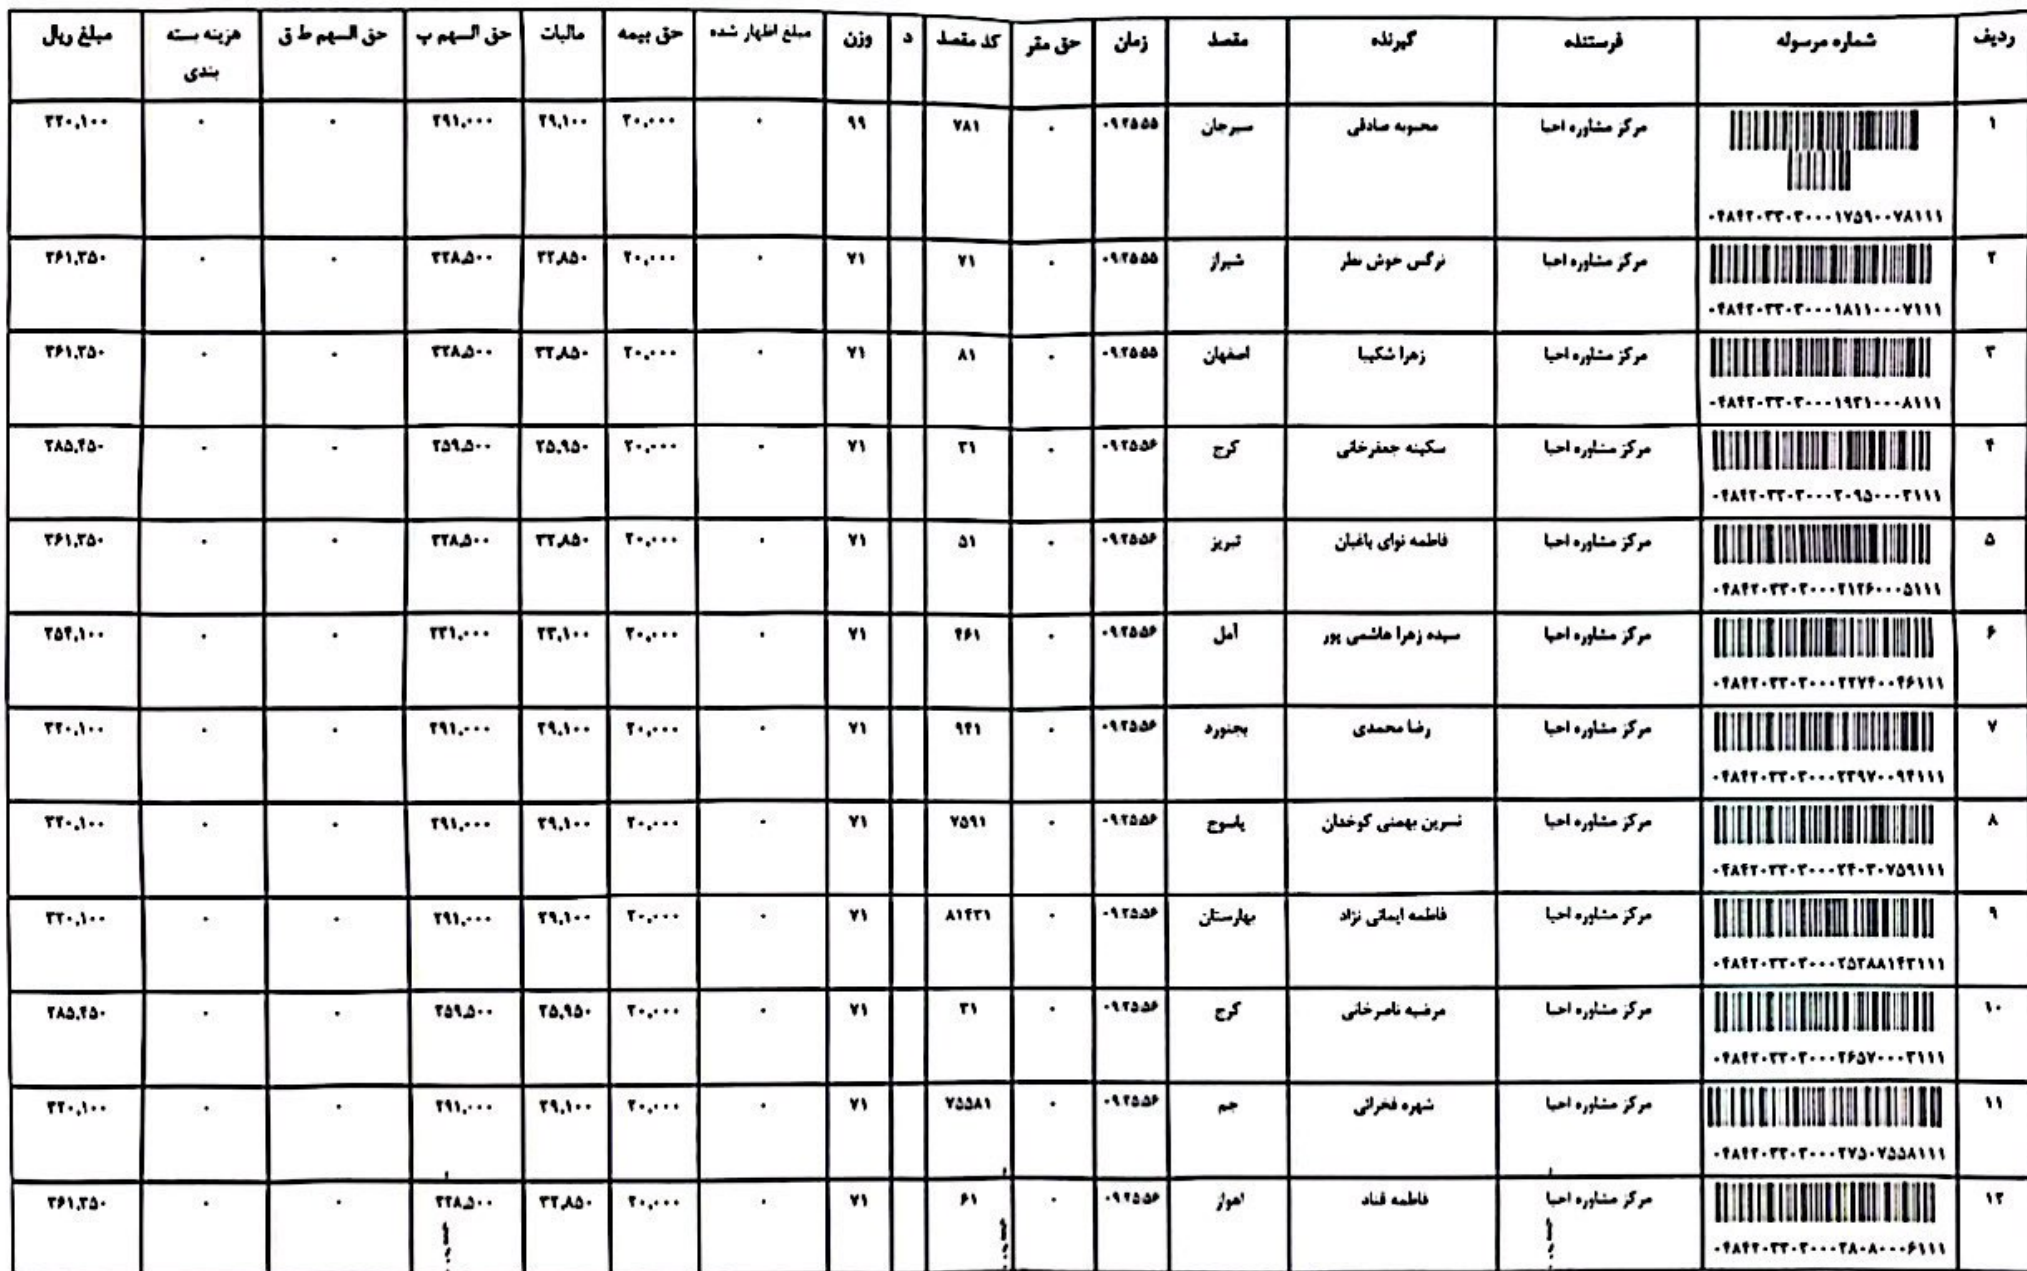 ردیف شماره مرسوله فرستنده گیرنده مقصد زمان حق مقر کد مقصد د وزن مبلغ اظهار شده حق بیمه مالیات حق السهم پ حق السهم ط ق هزینه بسته مبلغ ریال
بندی
۱ مرکز مشاوره احیا محبوبه صادقی سیرجان ۰۹:۲۵:۵۵ ۰ ۷۸۱ ۹۹ ۰ ۲۰,۰۰۰ ۲۹,۱۰۰ ۲۹۱,۰۰۰ ۰ ۰ ۳۲۰,۱۰۰
۰۴۸۴۲۰۳۳۰۳۰۰۰۱۷۵۹۰۰۷۸۱۱۱
۲ مرکز مشاوره احیا نرگس خوش نظر شیراز ۰۹:۲۵:۵۵ ۰ ۷۱ ۷۱ ۰ ۲۰,۰۰۰ ۳۲,۸۵۰ ۳۲۸,۵۰۰ ۰ ۰ ۳۶۱,۳۵۰
۰۴۸۴۲۰۳۳۰۳۰۰۰۱۸۱۱۰۰۰۷۱۱۱
۳ مرکز مشاوره احیا زهرا شکیبا اصفهان ۰۹:۲۵:۵۵ ۰ ۸۱ ۷۱ ۰ ۲۰,۰۰۰ ۳۲,۸۵۰ ۳۲۸,۵۰۰ ۰ ۰ ۳۶۱,۳۵۰
۰۴۸۴۲۰۳۳۰۳۰۰۰۱۹۳۱۰۰۰۸۱۱۱
۴ مرکز مشاوره احیا سکینه جعفرخانی کرج ۰۹:۲۵:۵۶ ۰ ۳۱ ۷۱ ۰ ۲۰,۰۰۰ ۲۵,۹۵۰ ۲۵۹,۵۰۰ ۰ ۰ ۲۸۵,۴۵۰
۰۴۸۴۲۰۳۳۰۳۰۰۰۲۰۹۵۰۰۰۳۱۱۱
۵ مرکز مشاوره احیا فاطمه نوای باغبان تبریز ۰۹:۲۵:۵۶ ۰ ۵۱ ۷۱ ۰ ۲۰,۰۰۰ ۳۲,۸۵۰ ۳۲۸,۵۰۰ ۰ ۰ ۳۶۱,۳۵۰
۰۴۸۴۲۰۳۳۰۳۰۰۰۲۱۲۶۰۰۰۵۱۱۱
۶ مرکز مشاوره احیا سیده زهرا هاشمی پور آمل ۰۹:۲۵:۵۶ ۰ ۴۶۱ ۷۱ ۰ ۲۰,۰۰۰ ۲۳,۱۰۰ ۲۳۱,۰۰۰ ۰ ۰ ۲۵۴,۱۰۰
۰۴۸۴۲۰۳۳۰۳۰۰۰۲۲۷۴۰۰۴۶۱۱۱
۷ مرکز مشاوره احیا رضا محمدی بجنورد ۰۹:۲۵:۵۶ ۰ ۹۴۱ ۷۱ ۰ ۲۰,۰۰۰ ۲۹,۱۰۰ ۲۹۱,۰۰۰ ۰ ۰ ۳۲۰,۱۰۰
۰۴۸۴۲۰۳۳۰۳۰۰۰۲۳۹۷۰۰۹۴۱۱۱
۸ مرکز مشاوره احیا نسرین بهمنی کوخدان یاسوج ۰۹:۲۵:۵۶ ۰ ۷۵۹۱ ۷۱ ۰ ۲۰,۰۰۰ ۲۹,۱۰۰ ۲۹۱,۰۰۰ ۰ ۰ ۳۲۰,۱۰۰
۰۴۸۴۲۰۳۳۰۳۰۰۰۲۴۰۳۰۷۵۹۱۱۱
۹ مرکز مشاوره احیا فاطمه ایمانی نژاد بهارستان ۰۹:۲۵:۵۶ ۰ ۸۱۴۳۱ ۷۱ ۰ ۲۰,۰۰۰ ۲۹,۱۰۰ ۲۹۱,۰۰۰ ۰ ۰ ۳۲۰,۱۰۰
۰۴۸۴۲۰۳۳۰۳۰۰۰۲۵۳۸۸۱۴۳۱۱۱
۱۰ مرکز مشاوره احیا مرضیه ناصرخانی کرج ۰۹:۲۵:۵۶ ۰ ۳۱ ۷۱ ۰ ۲۰,۰۰۰ ۲۵,۹۵۰ ۲۵۹,۵۰۰ ۰ ۰ ۲۸۵,۴۵۰
۰۴۸۴۲۰۳۳۰۳۰۰۰۲۶۵۷۰۰۰۳۱۱۱
۱۱ مرکز مشاوره احیا شهره فخرائی جم ۰۹:۲۵:۵۶ ۰ ۷۵۵۸۱ ۷۱ ۰ ۲۰,۰۰۰ ۲۹,۱۰۰ ۲۹۱,۰۰۰ ۰ ۰ ۳۲۰,۱۰۰
۰۴۸۴۲۰۳۳۰۳۰۰۰۲۷۵۰۷۵۵۸۱۱۱
۱۲ مرکز مشاوره احیا فاطمه قناد اهواز ۰۹:۲۵:۵۶ ۰ ۶۱ ۷۱ ۰ ۲۰,۰۰۰ ۳۲,۸۵۰ ۳۲۸,۵۰۰ ۰ ۰ ۳۶۱,۳۵۰
۰۴۸۴۲۰۳۳۰۳۰۰۰۲۸۰۸۰۰۰۶۱۱۱